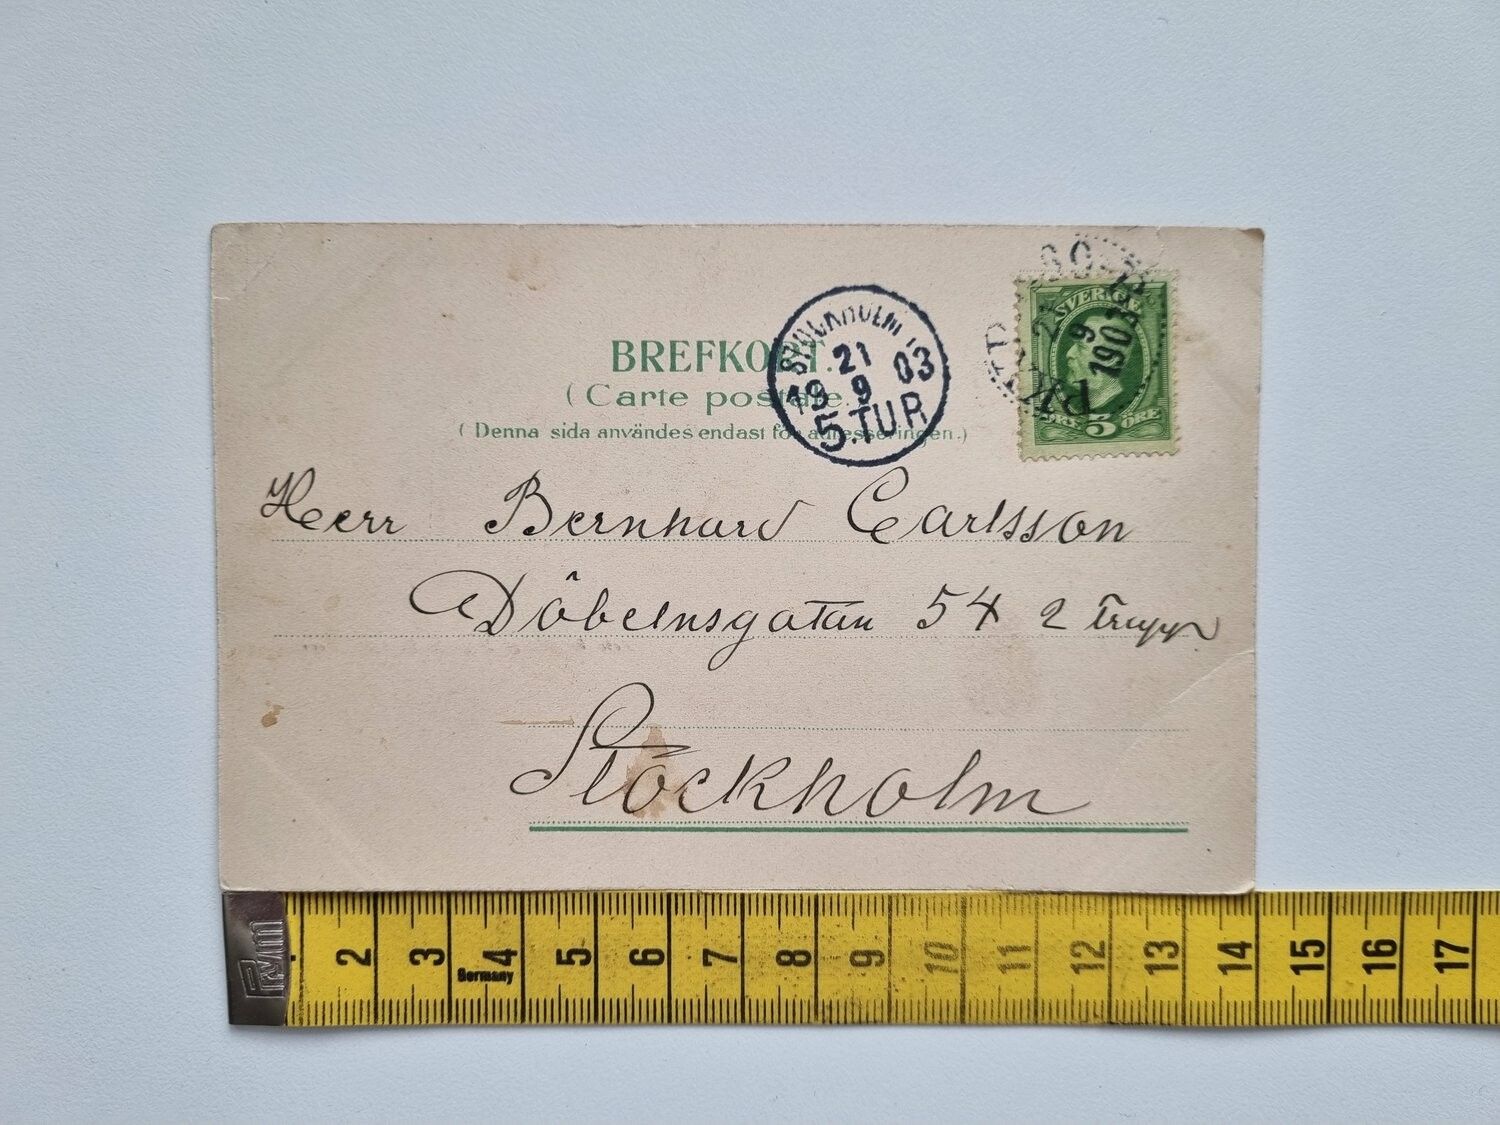 BREFKORT.
( Carte postale. )
( Denna sida användes endast för adresseringen.)
STOCKHOLM 1
21
19 9 03
5.TUR
PKXP
21
9
1903
SVERIGE
5
ÖRE
Herr Bernhard Carlsson
Döbelnsgatan 54 2 trapp
Stockholm
Prym
2 3 4 5 6 7 8 9 10 11 12 13 14 15 16 17
Germany